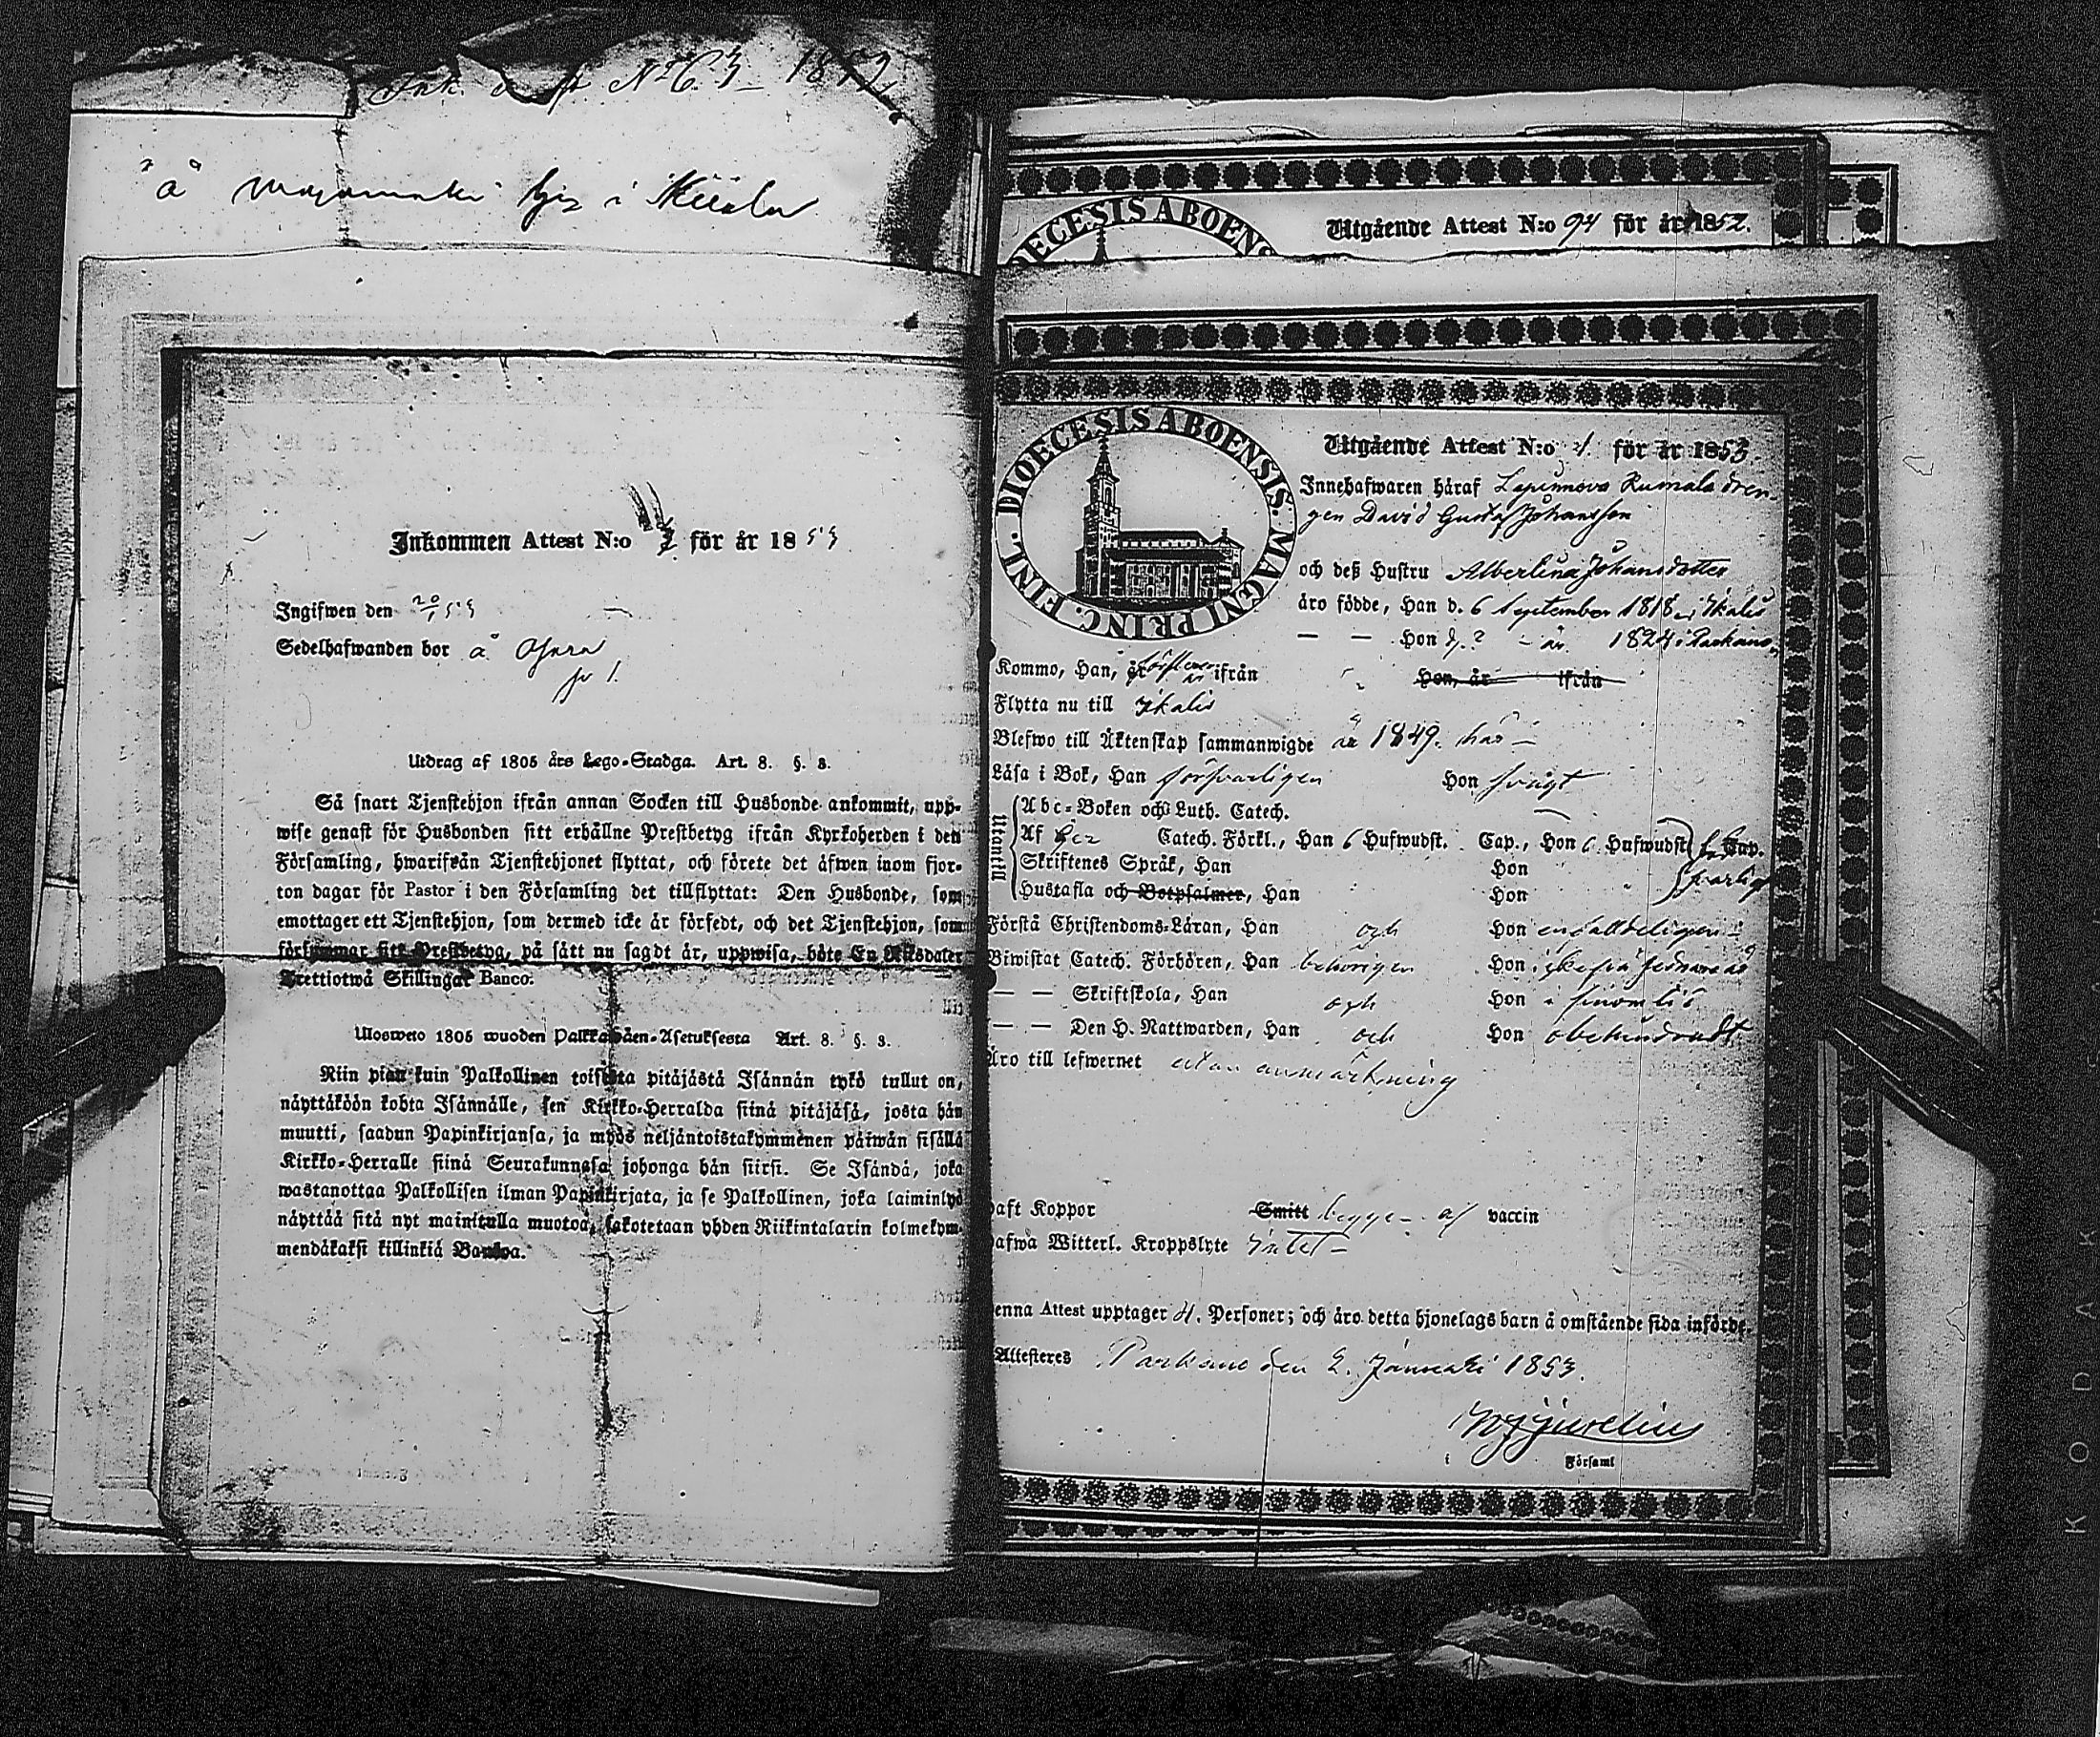 Ink. N:o 63 1852
"å" i
Inkommen Attest N:o för år 1853
Ingifwen den 20/1 53
Sedelhafwanden bor å
Utdrag af 1805 års Lego-Stadga. Art. 8. §. 8.
Så snart Tjenstehjon ifrån annan Socken till Husbonde ankommit, upp-
wise genast för Husbonden sitt erhållne Prestbetyg ifrån Kyrkoherden i den
Församling, hwarifrån Tjenstehjonet flyttat, och förete det äfwen inom fjor-
ton dagar för Pastor i den Församling det tillflyttat: Den Husbonde, som
emottager ett Tjenstehjon, som dermed icke är försedt, och det Tjenstehjon, som
försummar sitt Prestbetyg, på sätt nu sagdt är, uppwisa, böte En Riksdaler
Trettiotwå Skillingar Banco.
Ulosweto 1805 wuoden Palkkawäen-Asetuksesta Art. 8. §. 8.
Niin pian kuin Palkollinen toisesta pitäjästä Isännän tykö tullut on,
näyttäköön kohta Isännälle, sen Kirkko-Herralda siinä pitäjäsä, josta hän
muutti, saadun Papinkirjansa, ja myös neljäntoistakymmenen päiwän sisällä
Kirkko-Herralle siinä Seurakunnasa johonga hän siirsi. Se Isändä, joka
wastanottaa Palkollisen ilman Papinkirjata, ja se Palkollinen, joka laiminlyö
näyttää sitä nyt mainitulla muotoa, sakotetaan yhden Riikintalarin kolmekym-
mendäkaksi killinkiä Bankoa.
DIOECESIS ABOENSIS
Utgående Attest N:o 94 för år 1852.
DIOECESIS ABOENSIS. MAGNI PRINC. FINL.
Utgående Attest N:o 1. för år 1853.
Innehafwaren häraf Lapinneva Rumala dren-
gen David Gustaf Johansson
och deß Hustru Albertina Johansdotter
äro födde, Han d. 6 September 1818 i Ikalis
— — Hon d. ? – år 1824 i Parkano
Kommo, Han, år ifrån Hon, år ifrån
Flytta nu till Ikalis
Blefwo till Äktenskap sammanwigde år 1849. här –
Läsa i Bok, Han försvarligen Hon svagt
Utantill
Abc-Boken och Luth. Catech.
Af Catech. Förkl., Han 6 Hufwudst. Cap., Hon 6 Hufwudst. Cap.
Skriftenes Språk, Han Hon
Hustafla och Botpsalmer, Han Hon
Förstå Christendoms-Läran, Han och Hon enfalldeligen –
Biwistat Catech. Förhören, Han behörigen Hon
— — Skriftskola, Han och Hon
— — Den H. Nattwarden, Han och Hon obehindradt
Äro till lefwernet utan anmärkning
haft Koppor Smitt begge – af vaccin
hafwa Witterl. Kroppslyte intet –
enna Attest upptager 4. Personer; och äro detta hjonelags barn å omstående sida införde.
Attesteres Parkano den 2. Januari 1853.
Församl
KODAK